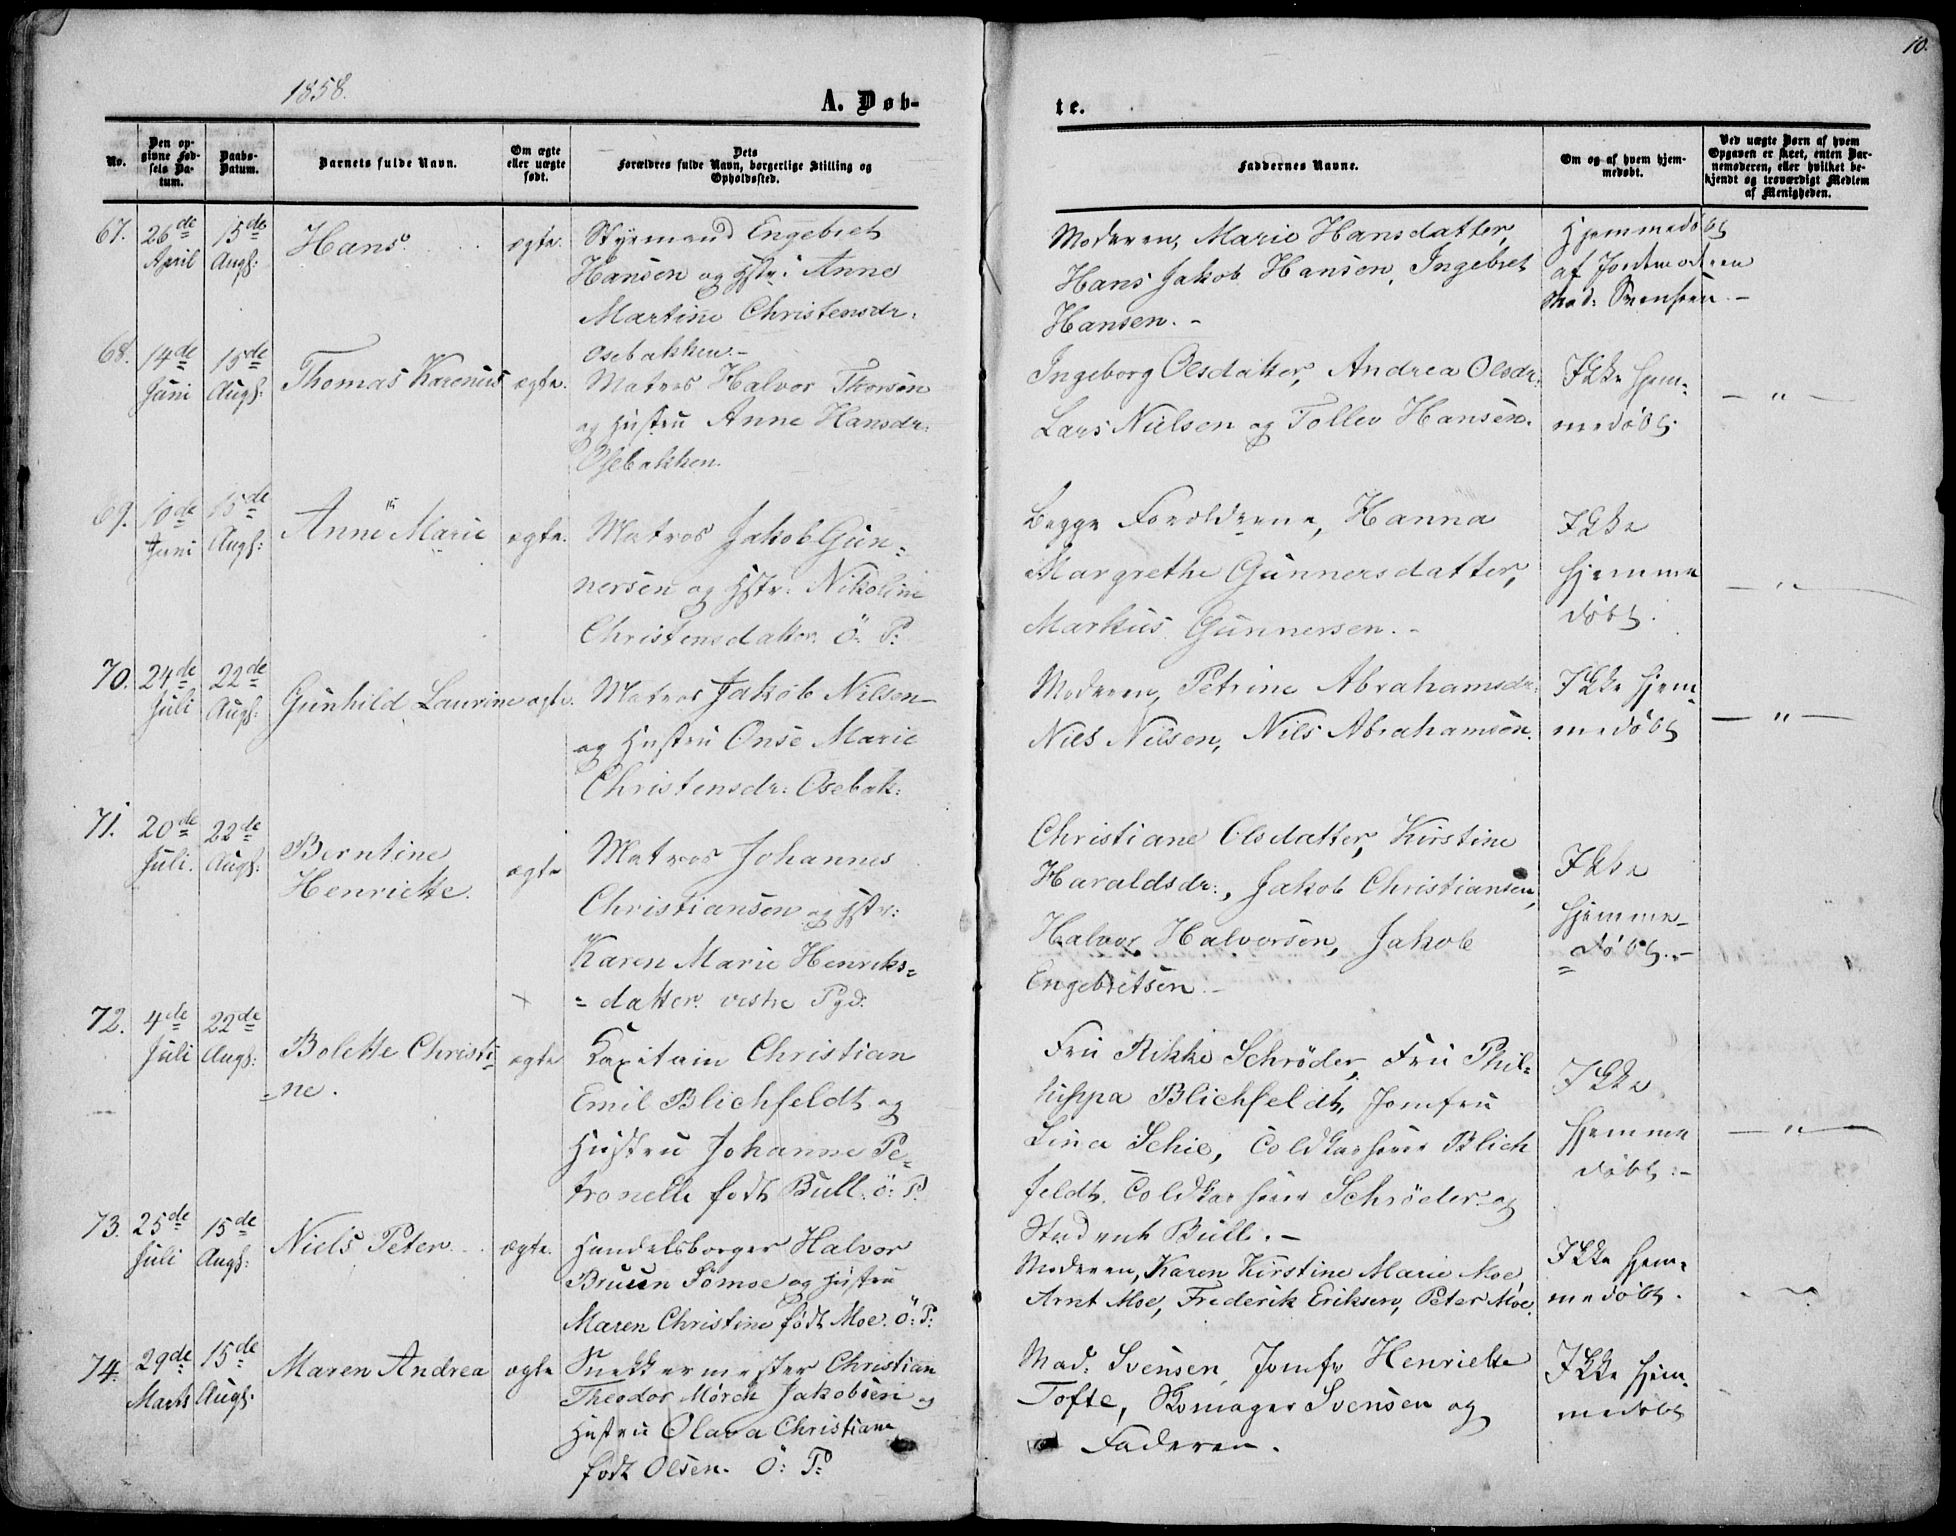 10.
1858.
A. Døb-
te.
No.
Den op-
givne Fød-
sels Da-
tum.
Daabs-
Datum.
Barnets fulde Navn.
Om ægte
eller uægte
født.
Dets
Forældres fulde Navn, borgerlige Stilling og
Opholdssted.
Faddernes Navne.
Om og af hvem hjem-
medøbt.
Ved uægte Børn af hvem
Opgaven er skeet, enten Bar-
nemoderen, eller hvilket be-
kjendt og troværdigt Medlem
af Menigheden.
67.
26de
April
15de
Augs:
Hans
ægte.
Styrmand Engebret
Hansen og Hstr: Anne
Martine Christensdr.
Osebakken.-
Moderen, Marie Hansdatter,
Hans Jakob Hansen, Ingebret
Hansen. -
Hjemmedøbt
af Jordmoderen
Mad: Svensen. -
68.
14de
Juni
15de
Augs:
Thomas Karenius
ægte.
Matros Halvor Thorsen
og Hustru Anne Hansdr:
Osebakken.
Ingeborg Olsdatter, Andrea Olsdr.
Lars Nielsen og Tollev Hansen.
Ikke hjem-
medøbt.
— " —
69.
10de
Juni
15de
Augs:
Anne Marie
ægte.
Matros Jakob Gun-
nersen og Hstr: Nikoline
Christensdatter. Ö: P:
Begge Forældrene, Hanna
Margrethe Gunnersdatter,
Markus Gunnersen. -
Ikke
hjemme
døbt.
— " —
70.
24de
Juli
22de
Augs:
Gunhild Laurine
ægte.
Matros Jakob Nilsen
og Hustru Onse Marie
Christensdr: Osebak:
Moderen, Petrine Abrahamsdr:
Niels Nilsen, Nils Abrahamsen.
Ikke hjem
medøbt
— " —
71.
20de
Juli.
22de
Augs:
Berntine
Henriette.
ægte
Matros Johannes
Christiansen og Hstr:
Karen Marie Henriks=
=datter. vestre Pgd.
Christiane Olsdatter, Kirstine
Haraldsdr:, Jakob Christiansen,
Halvor Halvorsen, Jakob
Engebretsen. -
Ikke
hjemme-
=døbt.-
72.
4de
Juli
22de
Augs:
Bolette Christi=
=ne.
ægte
Kapitain Christian
Emil Blichfeldt og
Hustru Johanne Pe=
tronelle født Bull. ö: P.
Fru Rikke Schröder, Fru Phil=
lippa Blichfeldt, Jomfru
Lina Schie, Toldkasserer Blich
feldt. Toldkasserer Schrøder og
Student Bull. -
Ikke
hjemme
døbt:-
— " —
73.
25de
Juli
15de
Augs:
Niels Peter.
ægte.
Handelsborger Halvor
Bruun Tömoe og Hustru
Maren Christine født Moe. Ö: P:
Moderen, Karen Kirstine Marie Moe
Arnt Moe, Frederik Eriksen, Peter Moe.
Ikke hjem=
medøbt.
74.
29de
Marts
15de
Augs.
Maren Andrea
ægte
Snekkermester Christian
Theodor Mørch Jakobsen og
Hustru Olava Christiane
født Olsen. Ö: P:
Mad: Svensen, Jomfr Henriette
Tofte, Skomager Svensen og
Faderen.
Ikke hjem-
medøbt